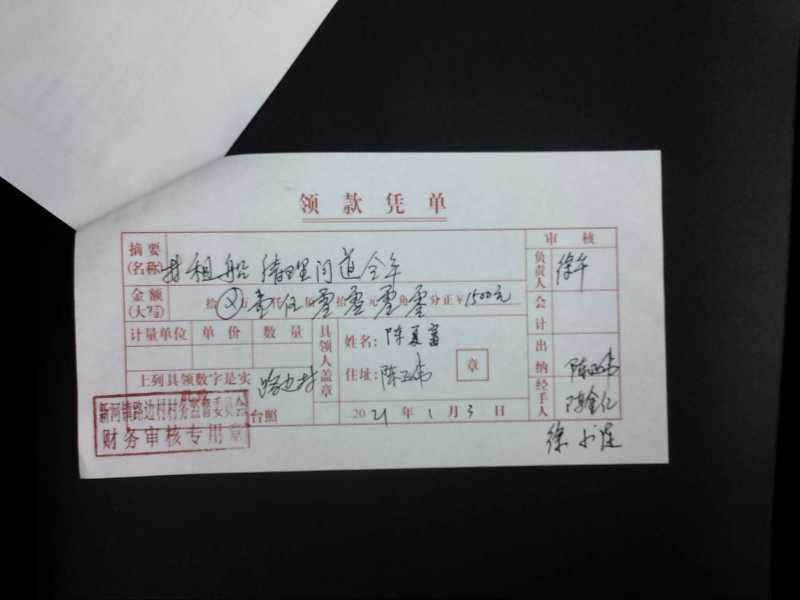 领款凭单
摘要(名称) 村租船清理河道全年
审核
负责人
金额(大写) 拾 万 壹仟 佰 零拾 零元 零角 零分正¥1500元
会计
计量单位 单价 数量
具领人盖章
姓名:陈夏富
出纳
上列具领数字是实 路边村
住址:
章
经手人
台照
2021年1月3日
新河镇路边村村务监督委员会
财务审核专用章